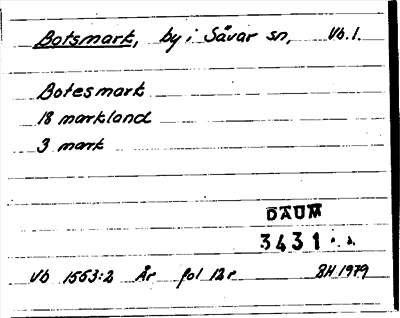 Botsmark, by i Sävar sn, Vb.l.
Botesmark
18 markland
3 mark
DAUM
3431
Vb 1563:2 År fol 12r BH 1979